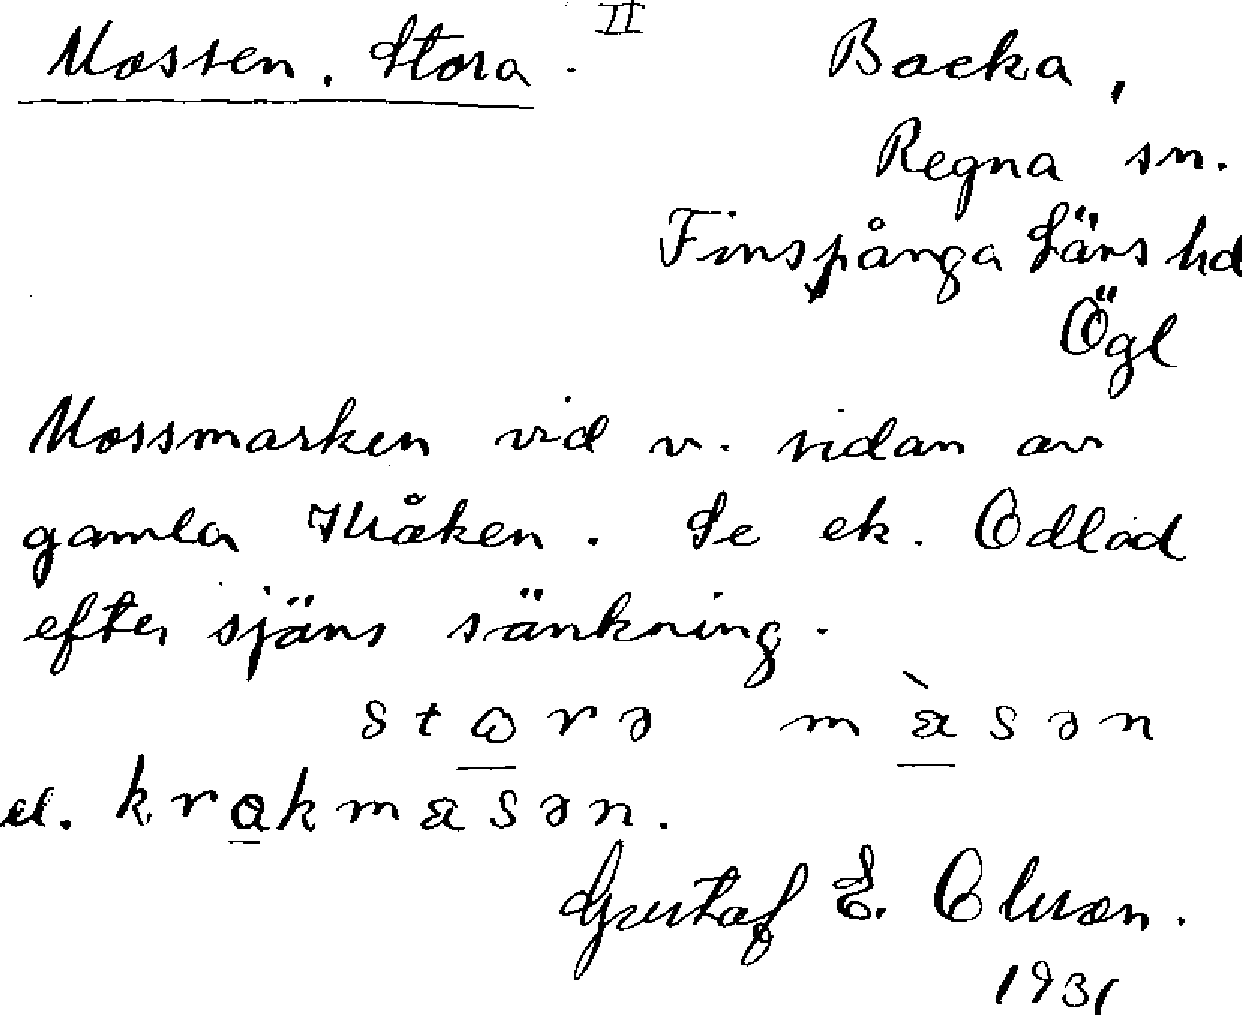 Mossen, Stora. II Backa,
Regna sn.
Finspånga läns hd
Ögl
Mossmarken vid v. sidan av
gamla Kråken. Se ek. Odlad
efter sjöns sänkning.
el.
Gustaf E. Olsson.
1931